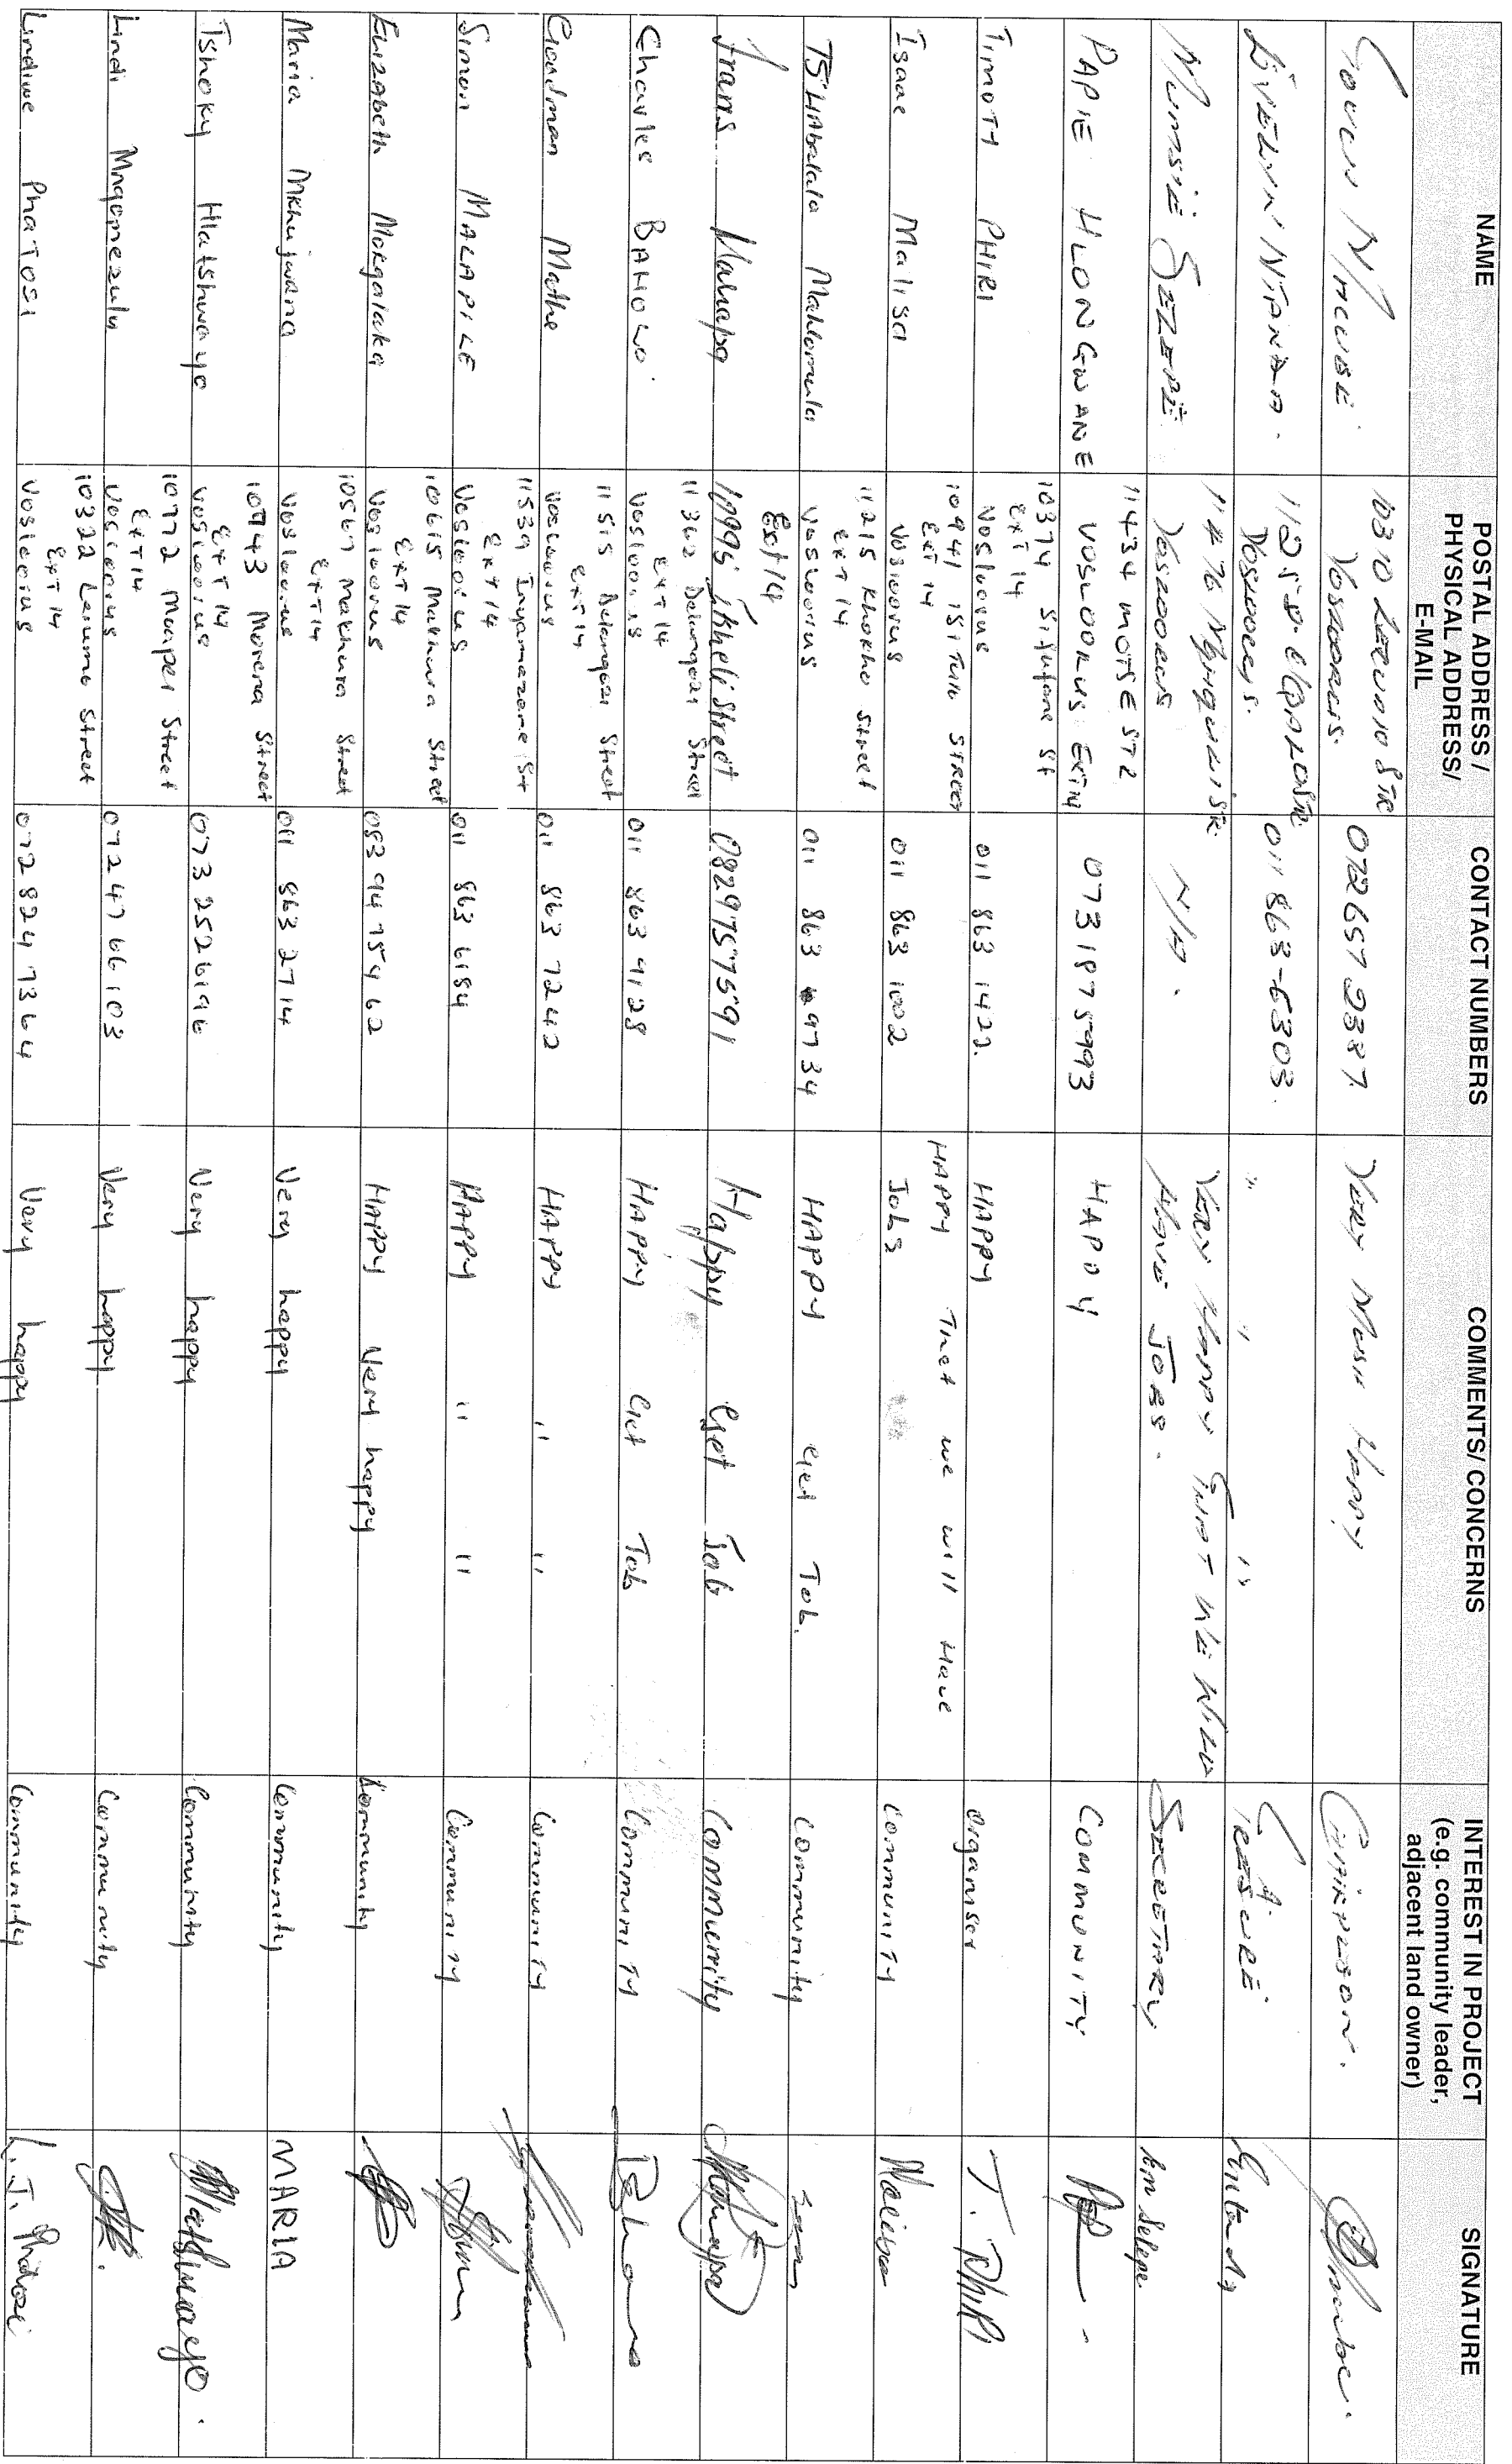 NAME
POSTAL ADDRESS /
PHYSICAL ADDRESS/
E-MAIL
CONTACT NUMBERS
COMMENTS/ CONCERNS
INTEREST IN PROJECT
(e.g. community leader,
adjacent land owner)
SIGNATURE
10310
072657 2387
VERY MUSH HAPPY
011 863-6303.
" " "
MUMSIE
N/A.
VERY HAPPY THAT WE WILL
HAVE JOBS.
SECRETARY
PAPIE HLONGWANE
11434 MOTSE ST2
VOSLOORUS EXT14
073 1875993
HAPPY
COMMUNITY
TIMOTH PHIRI
10374 Sifufane St
EXT 14
Vosloorus
011 863 1422.
HAPPY
organiser
T. Phiri
Isaac Malisa
10941 ISITULO STREET
EXT 14
Vosloorus
011 863 1002
HAPPY That we will Have
Jobs
Community
Malisa
TSHABALALA Mahlomula
11215 Khokho Street
EXT 14
Vosloorus
011 863 9734
HAPPY Get Job.
Community
Frans
10995 Street
Ext 14
0829757591
Happy Get Job
Community
Charles BAHOLO
11362 Street
EXT 14
Vosloorus
011 863 4128
HAPPY Get Job
Community
Goodman Mathe
11515 Street
EXT 14
Vosloorus
011 863 7242
HAPPY " "
Community
Simon MALAPILE
11539 Inyamazane St
EXT 14
Vosloorus
011 863 6184
HAPPY " "
Community
Elizabeth Mokgalaka
10615 Makhura Street
EXT 14
Vosloorus
083 94 75462
HAPPY Very happy
Community
Maria Mkhujwana
10567 Makhura Street
EXT 14
Vosloorus
011 863 2714
Very happy
Community
MARIA
Tshoky Hlatshwayo
10943 Morena Street
EXT 14
Vosloorus
073 2526196
Very happy
Community
Hlatshwayo.
Lindi Mngomezulu
10772 Street
EXT 14
Vosloorus
072 47 66 103
Very happy
Community
Lindiwe PhaTosi
10322 Street
EXT 14
Vosloorus
072 824 7364
Very happy
Community
L.J. Phatosi